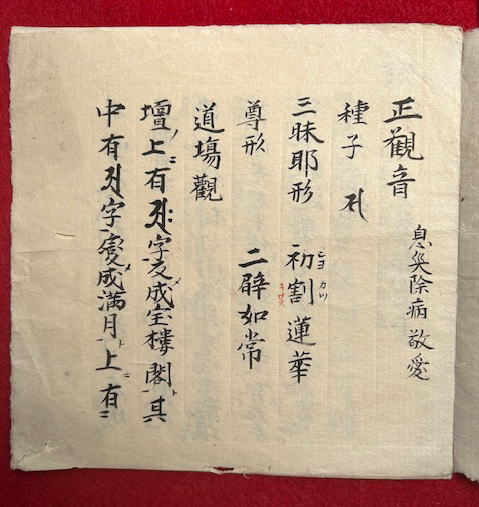 正觀音 息災除病敬愛
種子 𑖭
三昧耶形 初割蓮華
尊形 二臂如常
道場觀
壇ノ上ニ有𑖮𑖿𑖨𑖱𑖾字変メ成宝樓閣ト其
中ニ有字変メ成滿月ト上ニ有ニ